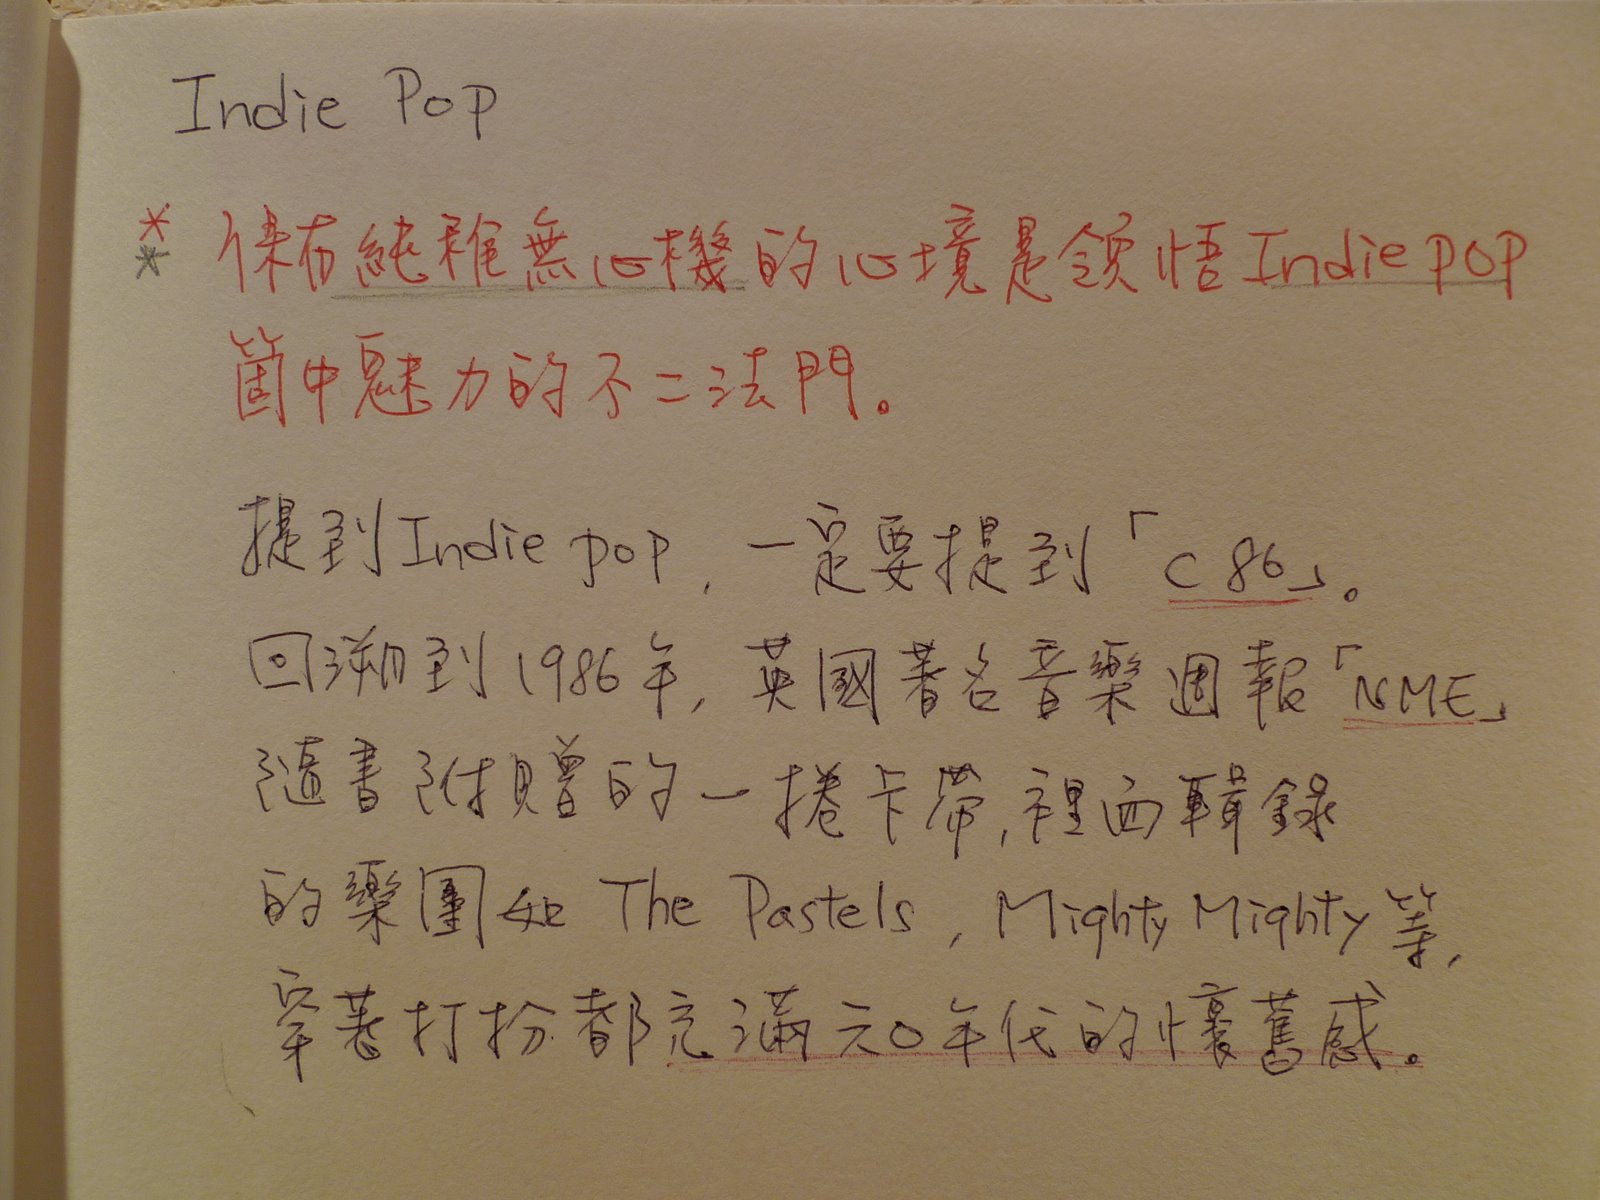 Indie Pop
* 保有純稚無心機的心境是領悟Indie pop
* 箇中魅力的不二法門。
提到Indie pop,一定要提到「C86」。
回溯到1986年,英國著名音樂週報「NME」
隨書附贈的一捲卡帶,裡面輯錄
的樂團如 The Pastels, Mighty Mighty等,
穿著打扮都充滿六0年代的懷舊感。